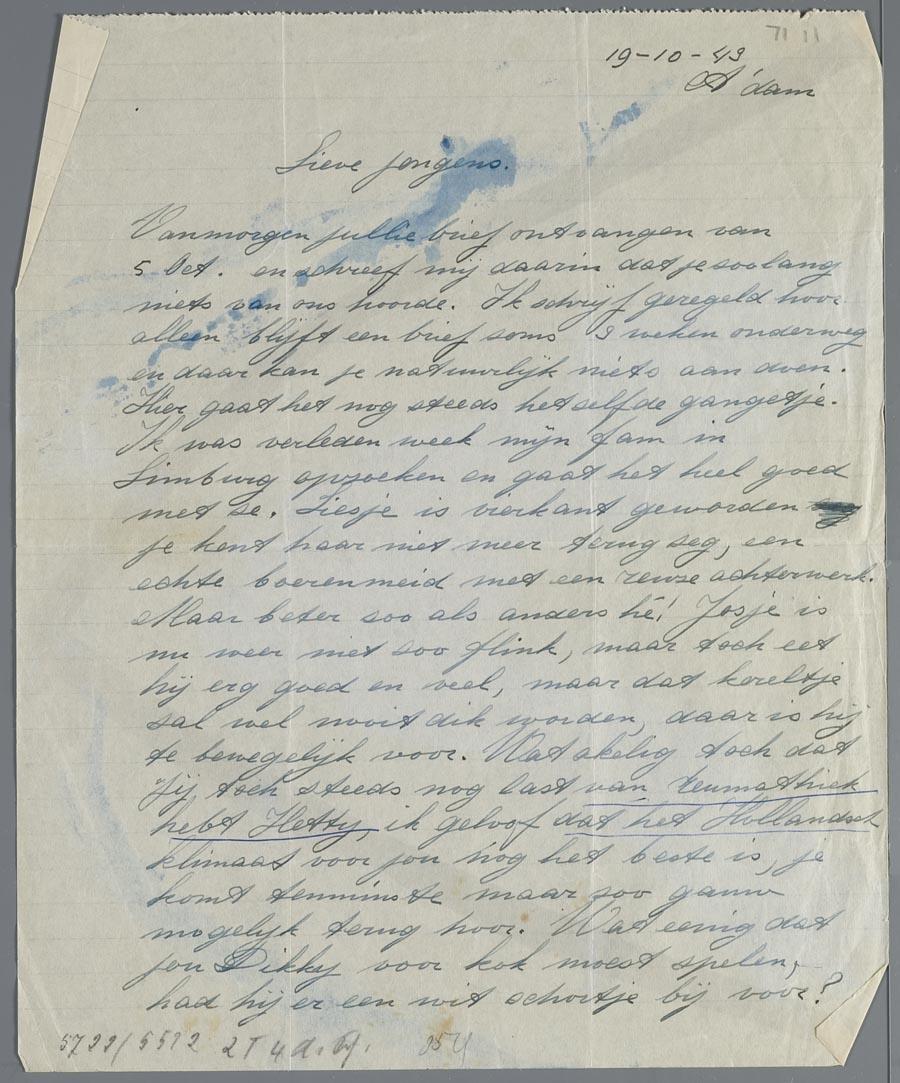 71 11
19-10-43
A'dam
Lieve jongens.
Vanmorgen jullie brief ontvangen van
5 Oct. en schreef mij daarin dat je soo lang
niets van ons hoorde. Ik schrijf geregeld hoor
alleen blijft een brief soms 3 weken onderweg
en daar kan je natuurlijk niets aan doen.
Hier gaat het nog steeds hetselfde gangetje.
Ik was verleden week mijn fam in
Limburg opzoeken en gaat het heel goed
met se. Liesje is vierkant geworden
je kent haar niet meer terug seg, een
echte boerenmeid met een reuze achterwerk.
Maar beter soo als anders hé! Josje is
nu weer niet soo flink, maar toch eet
hij erg goed en veel, maar dat kereltje
sal wel nooit dik worden, daar is hij
te bewegelijk voor. Wat akelig toch dat
jij toch steeds nog last van reumathiek
hebt Hetty, ik geloof dat het Hollandsch
klimaat voor jou nog het beste is, je
komt tenminste maar soo gauw
mogelijk terug hoor. Wat eenig dat
jou Dikky voor kok moest spelen,
had hij er een wit schortje bij voor?
5722/5522 2T 4 d.